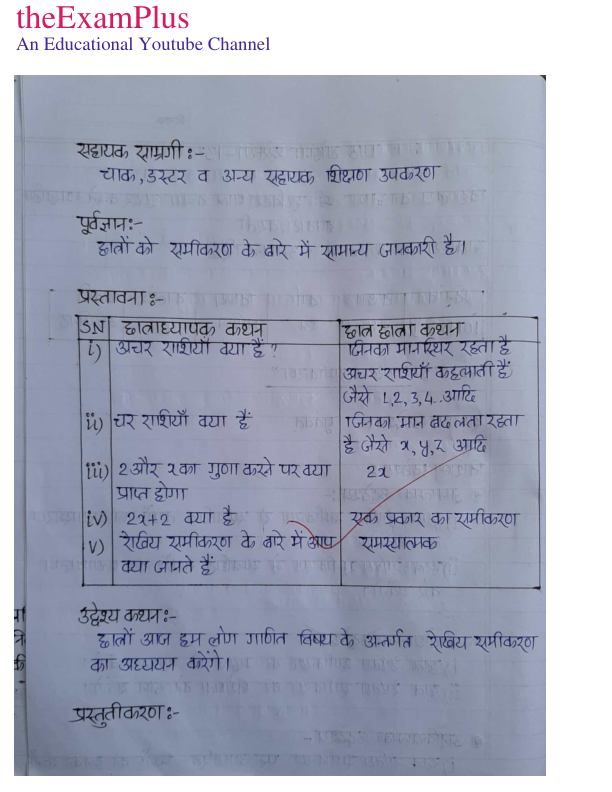 theExamPlus
An Educational Youtube Channel
सहायक साम्रगी :-
चाक, डस्टर व अन्य सहायक शिक्षण उपकरण
पूर्वज्ञान:-
छात्रों को समीकरण के बारे में सामान्य जानकारी है।
प्रस्तावना :-
SN छात्राध्यापक कथन छात्र छात्रा कथन
i) अचर राशियाँ क्या हैं ? जिनका मान स्थिर रहता है
अचर राशियाँ कहलाती हैं
जैसे 1,2,3,4..आदि
ii) चर राशियाँ क्या हैं जिनका मान बदलता रहता
है जैसे x, y, z आदि
iii) 2 और x का गुणा करने पर क्या 2x
प्राप्त होगा
iv) 2x+2 क्या है एक प्रकार का समीकरण
v) रेखिय समीकरण के बारे में आप समस्यात्मक
क्या जानते हैं
उद्देश्य कथन:-
छात्रों आज हम लोग गणित विषय के अन्तर्गत रेखिय समीकरण
का अध्ययन करेंगे।
प्रस्तुतीकरण:-